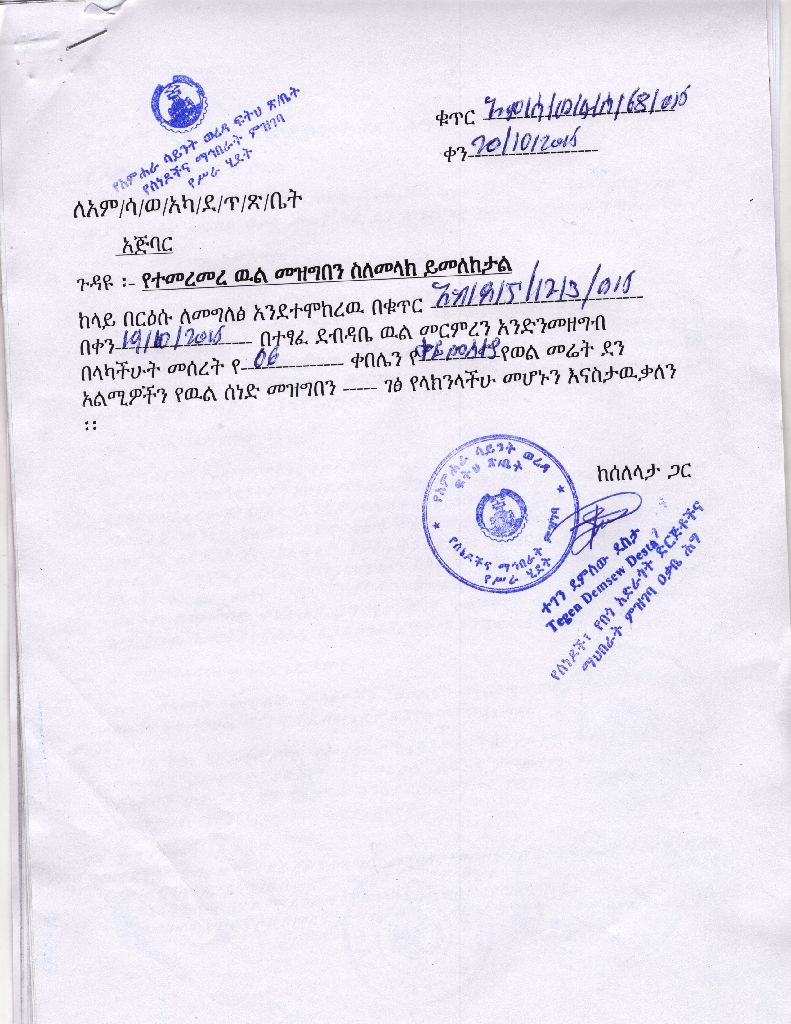 የአምሐራ ሳይንት ወረዳ ፍትህ ጽ/ቤት
የሰነዶችና ማኅበራት ምዝገባ
የሥራ ሂደት
ቁጥር
ቀን 20/10/2015
ለአም/ሳ/ወ/አካ/ደ/ጥ/ጽ/ቤት
አጅባር
ጉዳዩ ፡- የተመረመረ ዉል መዝግበን ስለመላክ ይመለከታል
ከላይ በርዕሱ ለመግለፅ እንደተሞከረዉ በቁጥር
በቀን 19/10/2015 በተፃፈ ደብዳቤ ዉል መርምረን እንድንመዘግብ
በላካችሁት መሰረት የ 06 ቀበሌን የ የወል መሬት ደን
አልሚዎችን የዉል ሰነድ መዝግበን ----- ገፅ የላክንላችሁ መሆኑን እናስታዉቃለን
፡፡
ከሰለላታ ጋር
የአምሐራ ሳይንት ወረዳ
ፍትህ ጽ/ቤት
የሰነዶችና ማኅበራት ምዝገባ
የሥራ ሂደት
ተገን ደምሰው ደስታ
Tegen Demsew Desta
የሰነዶች፣ የበጎ አድራጎት ድርጅቶችና
ማህበራት ምዝገባ ዐቃቤ ሕግ